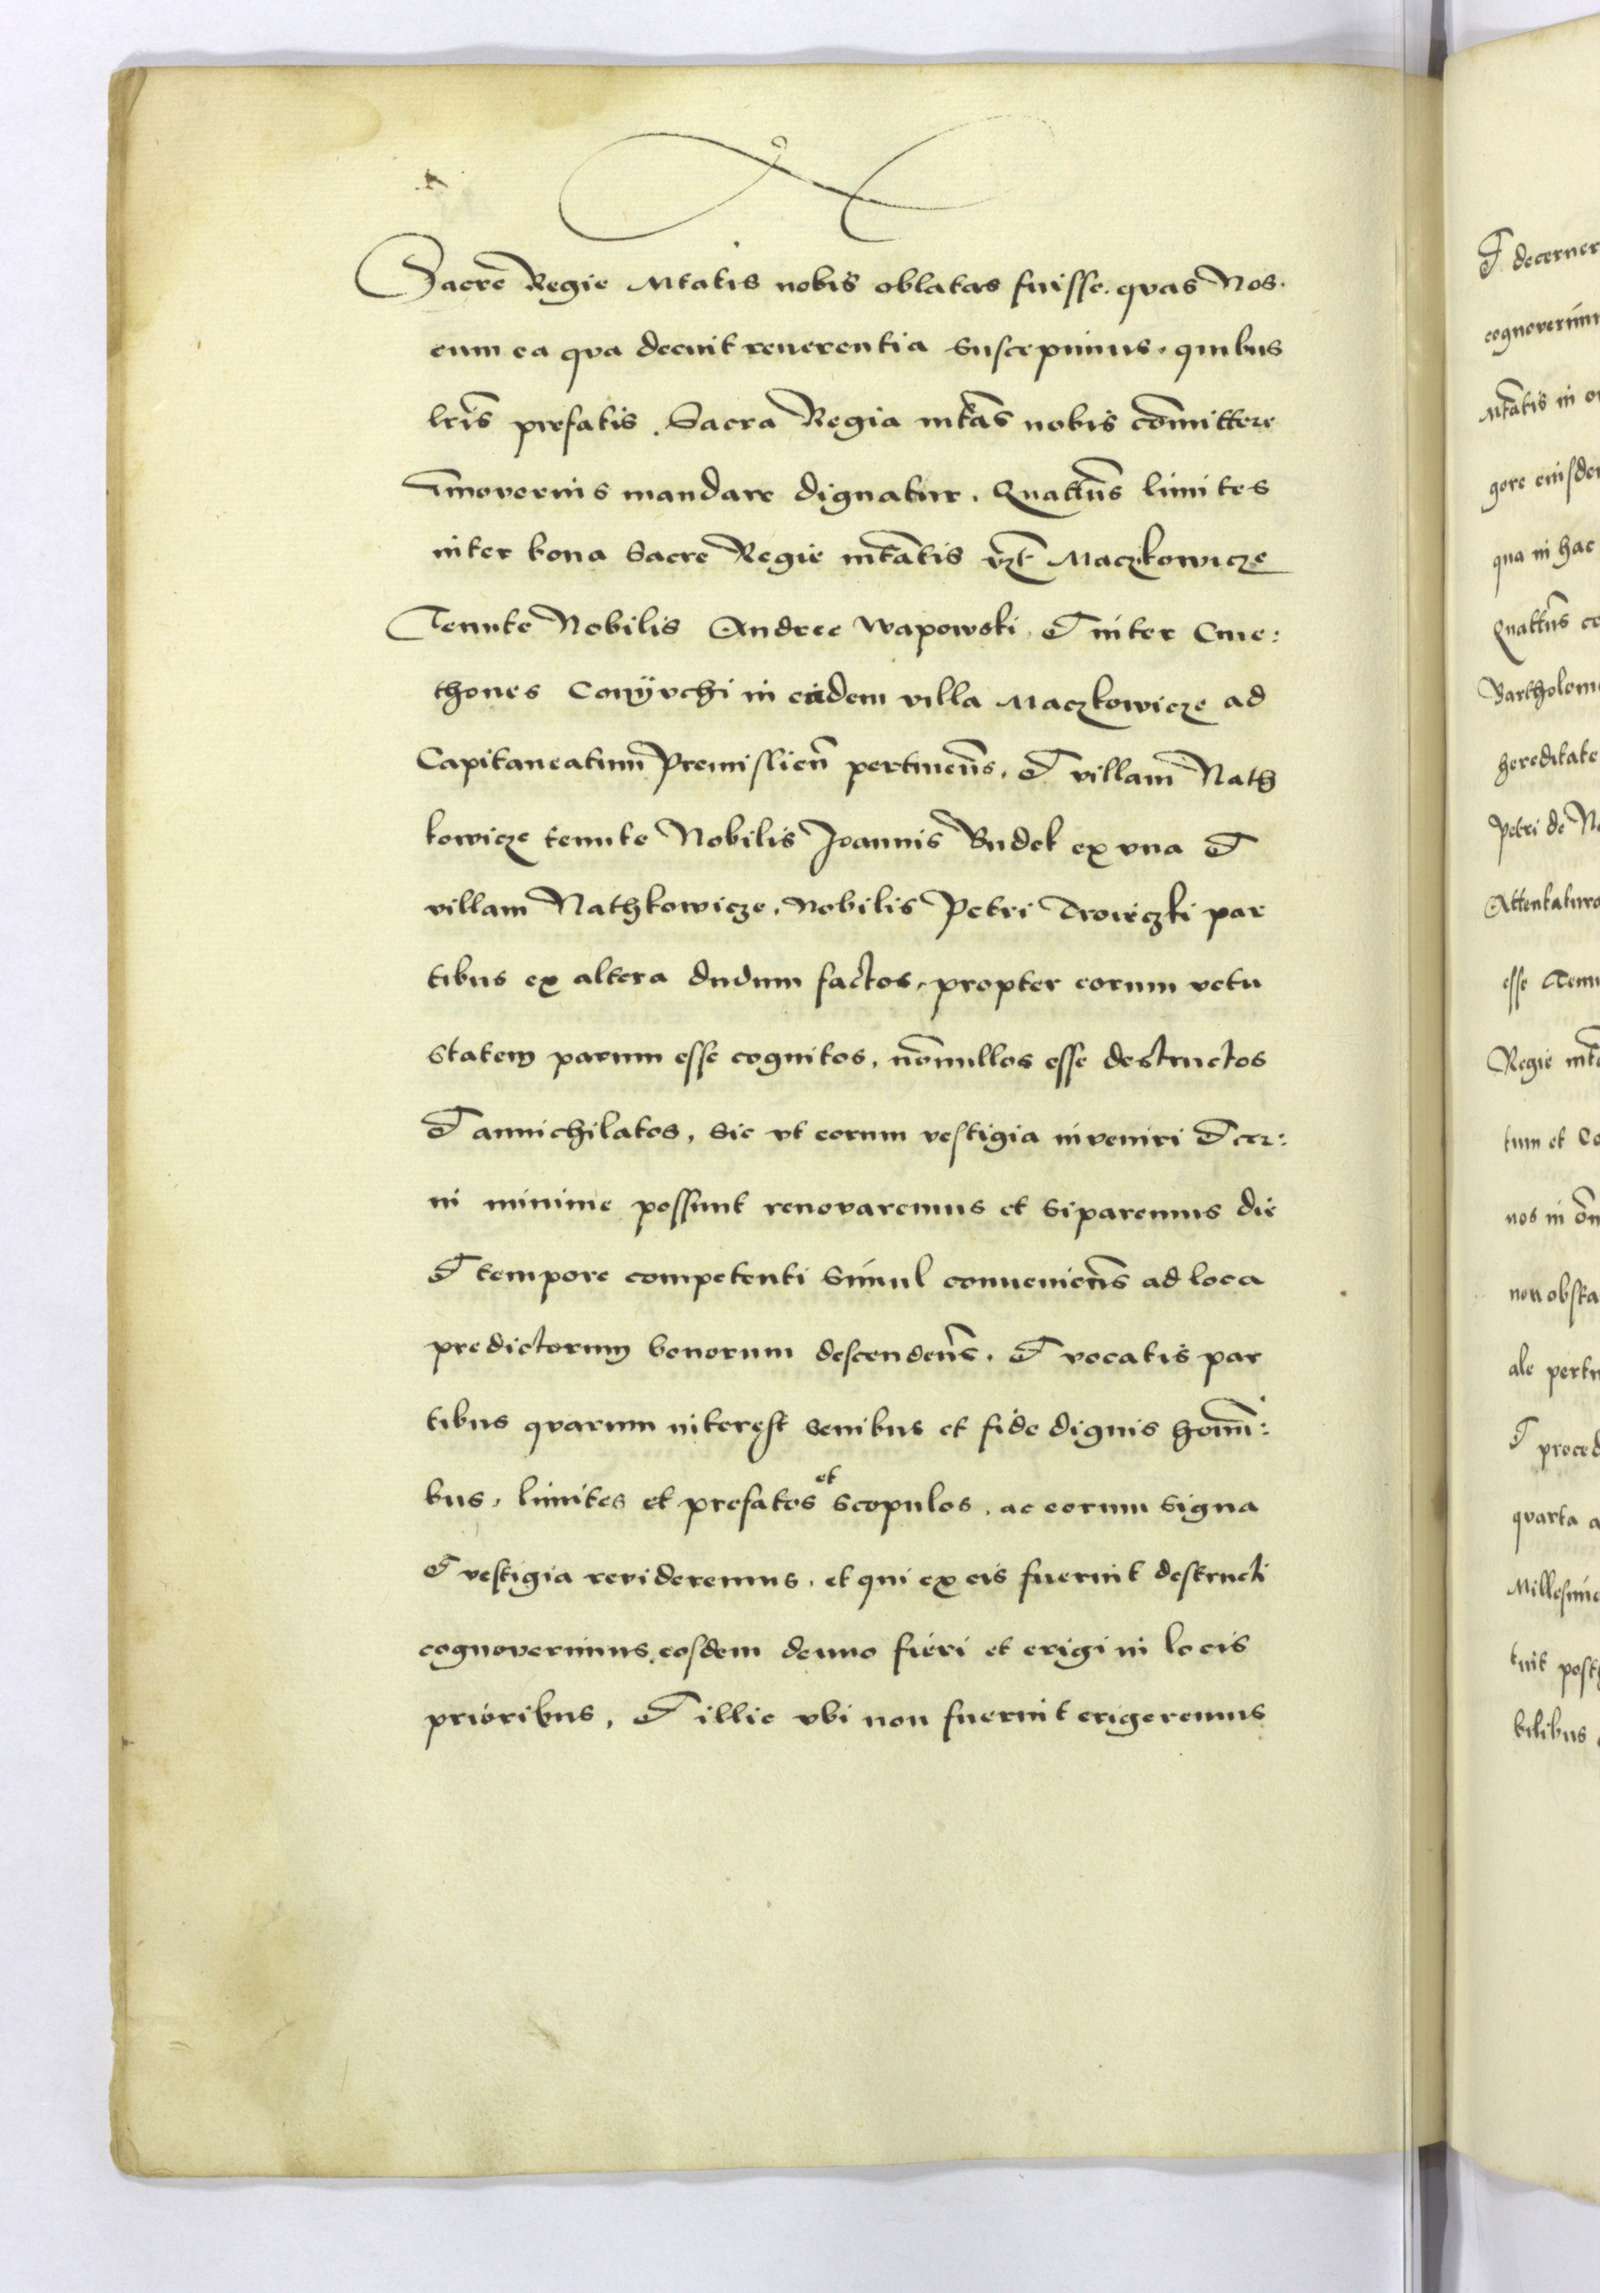 Sacre Regie Mtatis nobis oblatas fuisse. quas Nos.
cum ea qva decuit reuerentia suscepimus. quibus
lris prefatis. Sacra Regia mtas nobis comittere
mandare dignatur. Quatts limites
inter bona Sacre Regie mtatis vzt Maczkowicze
Tenute Nobilis Andree Wapowski et inter Cme:
thones in eadem villa Maczkowicze ad
Capitaneatum Premislien pertinens. et villam Nath
kowicze tenute Nobilis Joannis Budek ex vna et
villam Nathkowicze. Nobilis Petri par
tibus ex altera dudum factos, propter eorum vetu
statem parum esse cognitos, nonullos esse destructos
et annichilatos, sic vt eorum vestigia inveniri et cer:
ni minime possunt renovaremus et siparemus die
et tempore competenti simul conveniens ad loca
predictorum bonorum descendens. et vocatis par
tibus qvarum interest senibus et fide dignis homi:
bus, limites et prefatos et scopulos, ac eorum signa
et vestigia revideremus, et qui ex eis fuerint destructi
cognoverimus eosdem denuo fieri et erigi in locis
prioribus, et illic vbi non fuerint erigeremus
et decerner
cognoverim
Mtatis in
gore eiusde
qua in hac
Quatts
Bartholom
hereditate
Petri de
esse Tenu
Regie
tum et
nos in
non obsta
ale
et proced
qvarta
Millesim
tuit post
bilibus